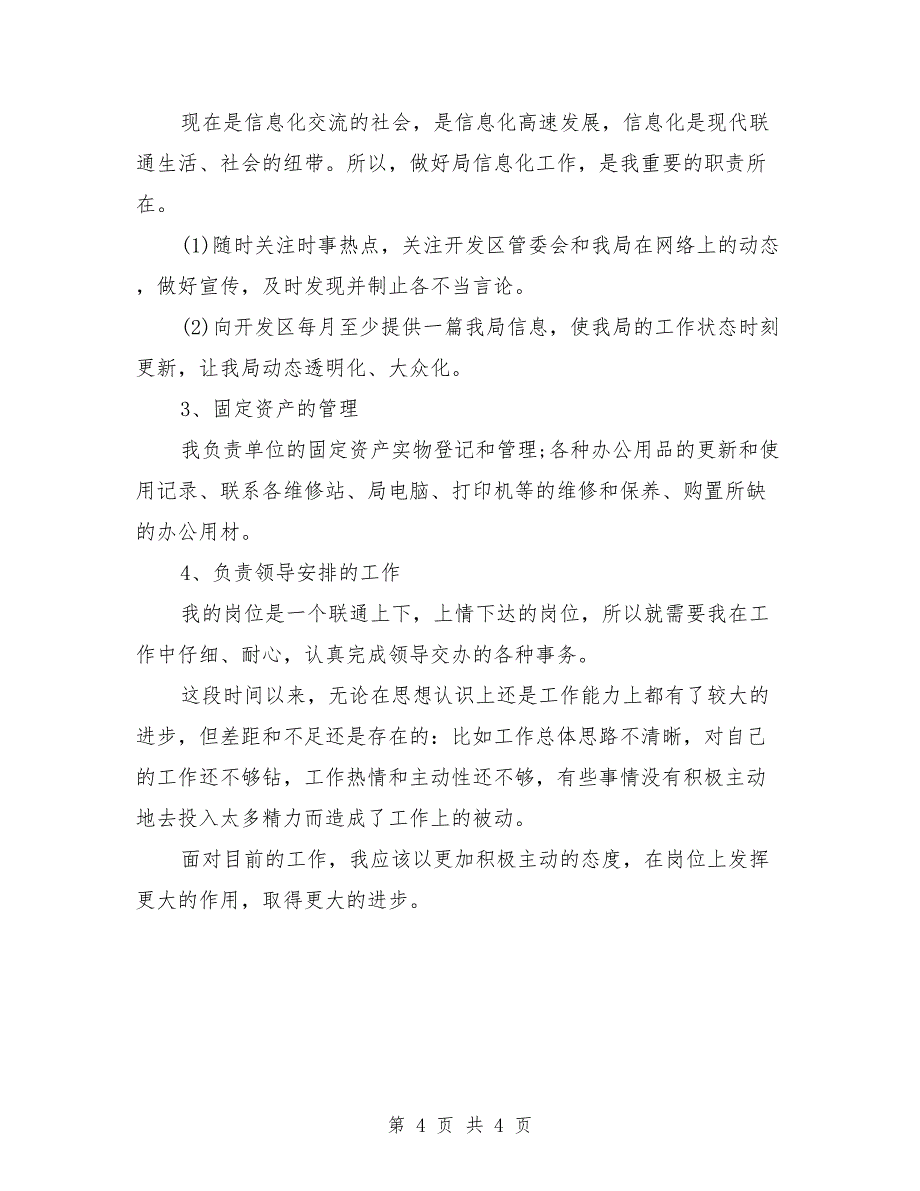 现在是信息化交流的社会，是信息化高速发展，信息化是现代联
通生活、社会的纽带。所以，做好局信息化工作，是我重要的职责所
在。
(1)随时关注时事热点，关注开发区管委会和我局在网络上的动态
，做好宣传，及时发现并制止各不当言论。
(2)向开发区每月至少提供一篇我局信息，使我局的工作状态时刻
更新，让我局动态透明化、大众化。
3、固定资产的管理
我负责单位的固定资产实物登记和管理;各种办公用品的更新和使
用记录、联系各维修站、局电脑、打印机等的维修和保养、购置所缺
的办公用材。
4、负责领导安排的工作
我的岗位是一个联通上下，上情下达的岗位，所以就需要我在工
作中仔细、耐心，认真完成领导交办的各种事务。
这段时间以来，无论在思想认识上还是工作能力上都有了较大的
进步，但差距和不足还是存在的：比如工作总体思路不清晰，对自己
的工作还不够钻，工作热情和主动性还不够，有些事情没有积极主动
地去投入太多精力而造成了工作上的被动。
面对目前的工作，我应该以更加积极主动的态度，在岗位上发挥
更大的作用，取得更大的进步。
第 4 页 共 4 页